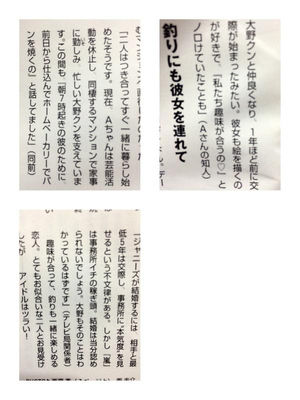 大野クンと仲良くなり、1年ほど前に交
際が始まったみたい。彼女も絵を描くの
が好きで、『私たち趣味が合うの♡』と
ノロけていたことも」（Aさんの知人）
釣りにも彼女を連れて
「二人はつき合ってすぐ一緒に暮らし始
めたそうです。現在、Aちゃんは芸能活
動を休止し、同棲するマンションで家事
に勤しみ、忙しい大野クンを支えていま
す。この間も『朝7時起きの彼のために、
前日から仕込んでホームベーカリーでパ
ンを焼くの』と話してました」（同前）
「ジャニーズが結婚するには、相手と最
低5年は交際し、事務所に“本気度”を見
せるという不文律がある。しかし『嵐』
は事務所イチの稼ぎ頭。結婚は当分認め
られないでしょう。大野もそのことはわ
かっているはずです」（テレビ局関係者）
趣味が合って、釣りも一緒に楽しめる
恋人。とてもお似合いな二人とお見受け
したが　アイドルはツラい！